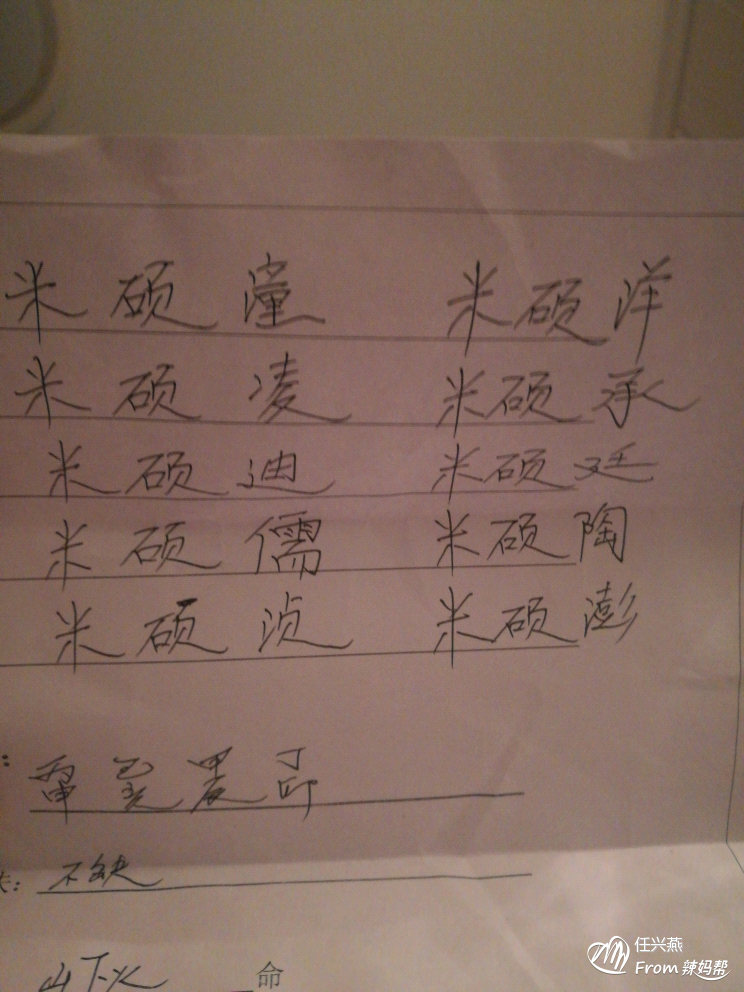 米硕潼 米硕洋
米硕凌 米硕承
米硕迪 米硕廷
米硕儒 米硕陶
米硕浈 米硕澎
：丙申 己亥 甲辰 丁卯
：不缺
山下火 命
任兴燕
From 辣妈帮